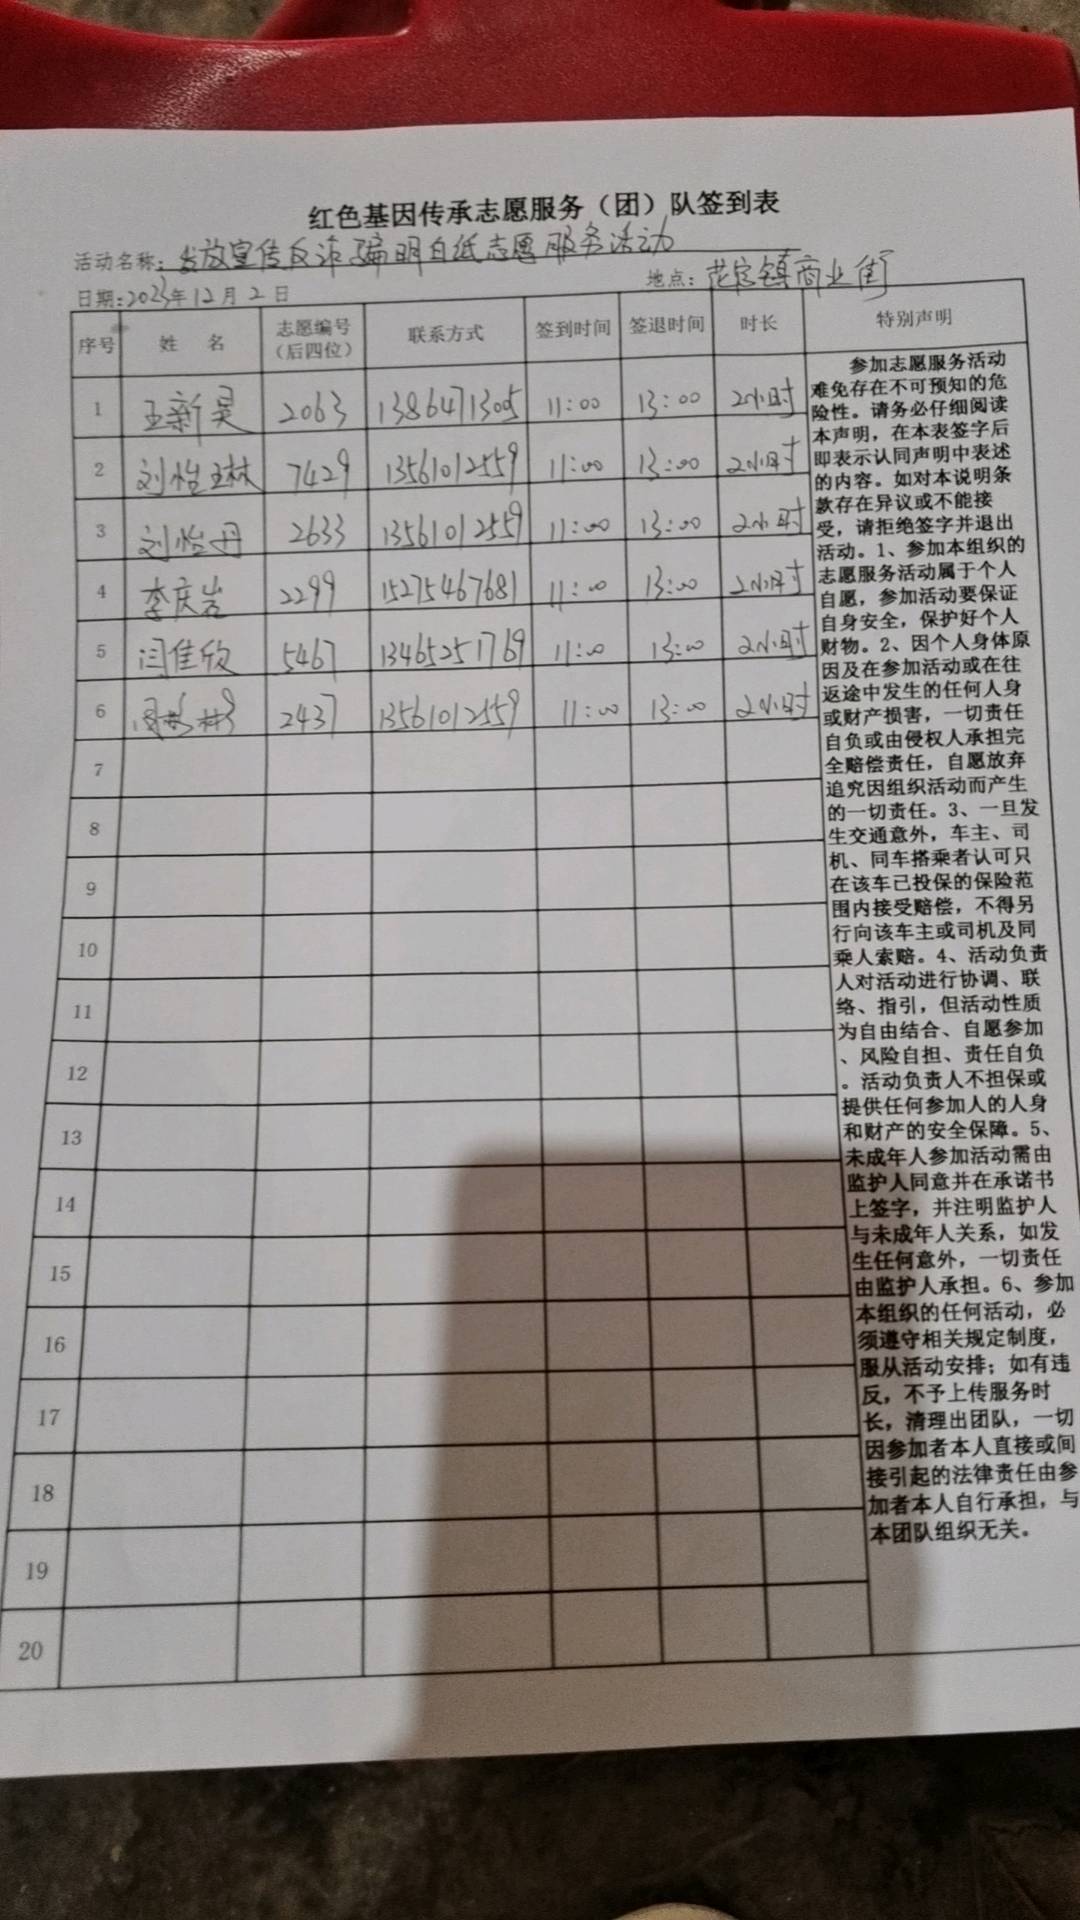 红色基因传承志愿服务（团）队签到表
活动名称：发放宣传反诈骗明白纸志愿服务活动
日期:2023年12月2日 地点：花官镇商业街
序号 姓 名 志愿编号（后四位） 联系方式 签到时间 签退时间 时长 特别声明
1 王新昊 2063 1386471305 11:00 13:00 2小时
2 刘怡琳 7429 13561012559 11:00 13:00 2小时
3 刘怡丹 2633 13561012559 11:00 13:00 2小时
4 李庆岩 2299 15275467681 11:00 13:00 2小时
5 闫佳欣 5467 13465251769 11:00 13:00 2小时
6 2437 13561012559 11:00 13:00 2小时
7
8
9
10
11
12
13
14
15
16
17
18
19
20
参加志愿服务活动
难免存在不可预知的危
险性。请务必仔细阅读
本声明，在本表签字后
即表示认同声明中表述
的内容。如对本说明条
款存在异议或不能接
受，请拒绝签字并退出
活动。1、参加本组织的
志愿服务活动属于个人
自愿，参加活动要保证
自身安全，保护好个人
财物。2、因个人身体原
因及在参加活动或在往
返途中发生的任何人身
或财产损害，一切责任
自负或由侵权人承担完
全赔偿责任，自愿放弃
追究因组织活动而产生
的一切责任。3、一旦发
生交通意外，车主、司
机、同车搭乘者认可只
在该车已投保的保险范
围内接受赔偿，不得另
行向该车主或司机及同
乘人索赔。4、活动负责
人对活动进行协调、联
络、指引，但活动性质
为自由结合、自愿参加
、风险自担、责任自负
。活动负责人不担保或
提供任何参加人的人身
和财产的安全保障。5、
未成年人参加活动需由
监护人同意并在承诺书
上签字，并注明监护人
与未成年人关系，如发
生任何意外，一切责任
由监护人承担。6、参加
本组织的任何活动，必
须遵守相关规定制度，
服从活动安排；如有违
反，不予上传服务时
长，清理出团队，一切
因参加者本人直接或间
接引起的法律责任由参
加者本人自行承担，与
本团队组织无关。